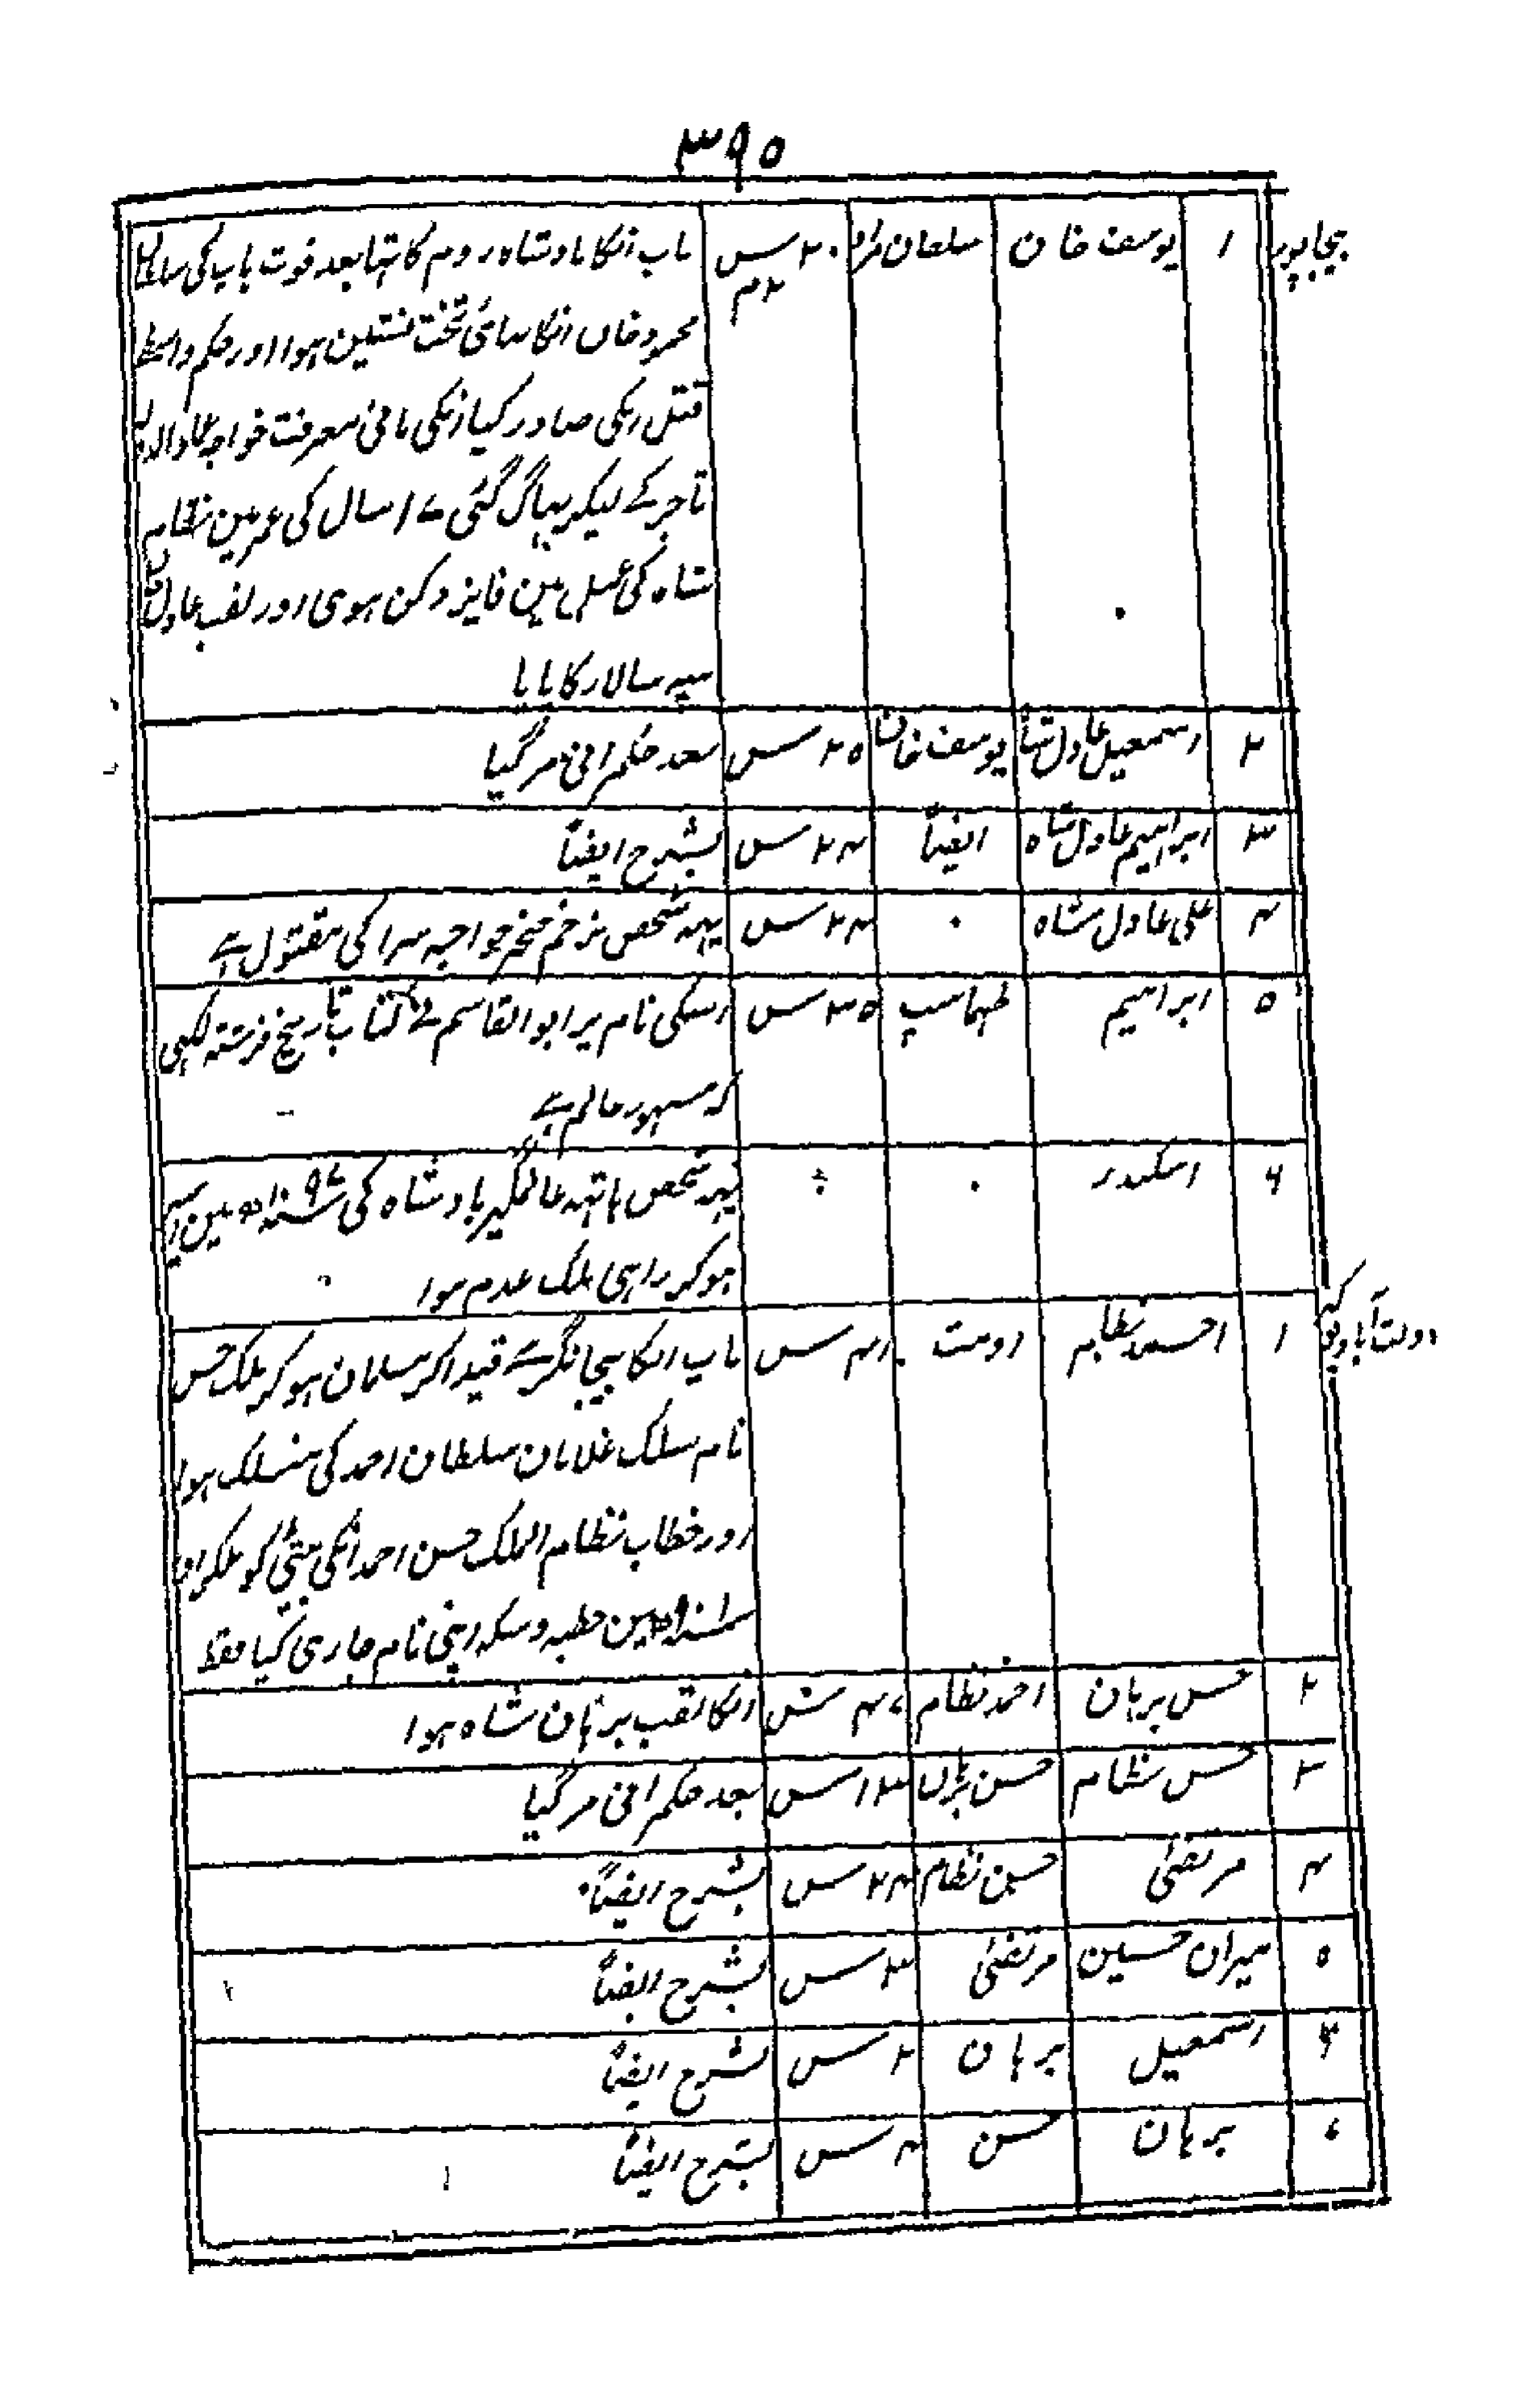 ۳۹۵
بیجاپور ۱ یوسف خان سلطان مراد ۲۰ س ۲ م باپ انکا بادشاہ روم کا تہا بعد فوت باپ کی سلطان
محمود خاں انکا بہائی تخت نشین ہوا اور حکم واسطے
قتل انکی صادر کیا انکی مافی معرفت خواجہ عماد الدین
تاجر کے لیکر بہاگ گئی ۱۷ سال کی عمر مین نظام
شاہ کی عمل مین فایز دکن ہوی اور لقب عادل خان
سپہ سالار کا پایا
۲ اسمعیل عادل شاہ یوسف خان ۲۵ س بعد حکمرانی مر گیا
۳ ابراہیم عادل شاہ ایضاً ۲۴ س بشرح ایضاً
۴ علی عادل شاہ ۰ ۲۴ س یہہ شخص بزخم خنجر خواجہ سرا کی مقتول ہے
۵ ابراہیم طہماسپ ۳۵ س اسکی نام پر ابو القاسم نے کتاب تاریخ فرشتہ لکہی
کہ مشہور عالم ہے
۶ اسکندر ۰ یہہ شخص ہاتہہ عالمگیر بادشاہ کی سنہ ۱۰۹۷ مین اسیر
ہو کر راہی ملک عدم ہوا
دولت آباد ۱ احمد نظام اومت ۴۱ س باپ اسکا بیجانگر سے قید آکر مسلمان ہو کر ملک حسن
نام سلک غلامان سلطان احمد کی منسلک ہوا
اور خطاب نظام الملک حسن احمد انکی بیٹی کو ملکر
مین خطبہ و سکہ اپنی نام جاری کیا فقط
۲ حسن برہان احمد نظام ۴۷ س انکا لقب برہان شاہ ہوا
۳ حسن نظام حسن برہان ۱۳ س بعد حکمرانی مر گیا
۴ مرتضیٰ حسن نظام ۲۴ س بشرح ایضاً
۵ میران حسین مرتضیٰ ۳ س بشرح ایضاً
۶ اسمعیل برہان ۲ س بشرح ایضاً
۷ برہان حسن ۴ س بشرح ایضاً